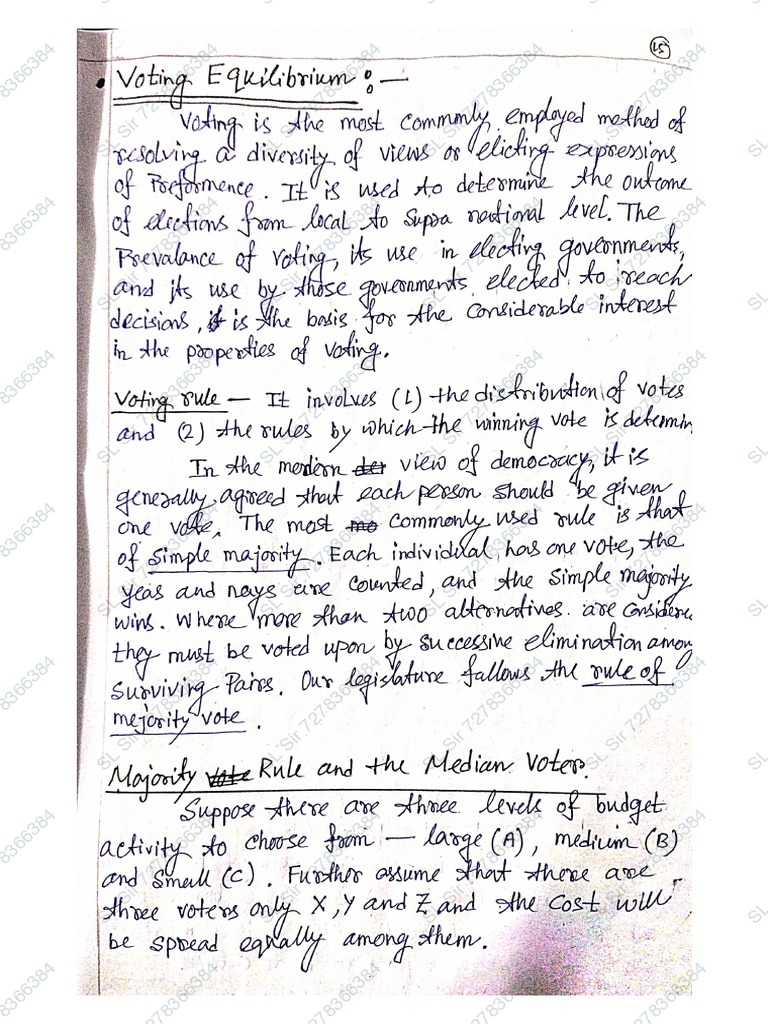 15
• Voting Equilibrium :—
Voting is the most commonly employed method of
resolving a diversity of views or elicting expressions
of Preformence. It is used to determine the outcome
of elections from local to Supra national level. The
Prevalance of voting, its use in electing governments,
and its use by those governments elected to reach
decisions, is the basis for the considerable interest
in the properties of voting.
Voting rule — It involves (1) the distribution of votes
and (2) the rules by which the winning vote is determin
In the mordern der view of democracy, it is
generally agreed that each person should be given
one vote. The most mo commonly used rule is that
of simple majority. Each individual has one vote, the
yeas and nays are counted, and the simple majority
wins. Where more than two alternatives are considere
they must be voted upon by successive elimination among
Surviving Pairs. Our legislature fallows the rule of
mejority vote.
Majority vote Rule and the Median Voter.
Suppose there are three levels of budget
activity to choose from — large (A), medium (B)
and Small (C). Further assume that there are
three voters only X, Y and Z and the cost will
be spread equally among them.
SL Sir 7278366384